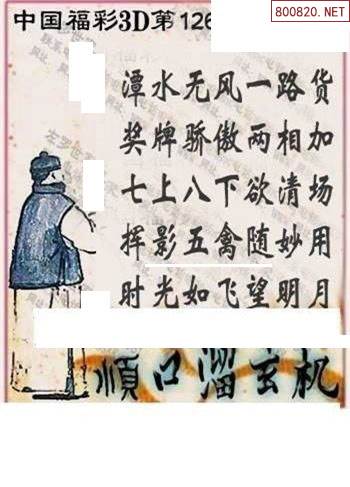 800820.NET
中国福彩3D第126
潭水无风一路货
奖牌骄傲两相加
七上八下欲清场
挥影五禽随妙用
时光如飞望明月
顺口溜玄机